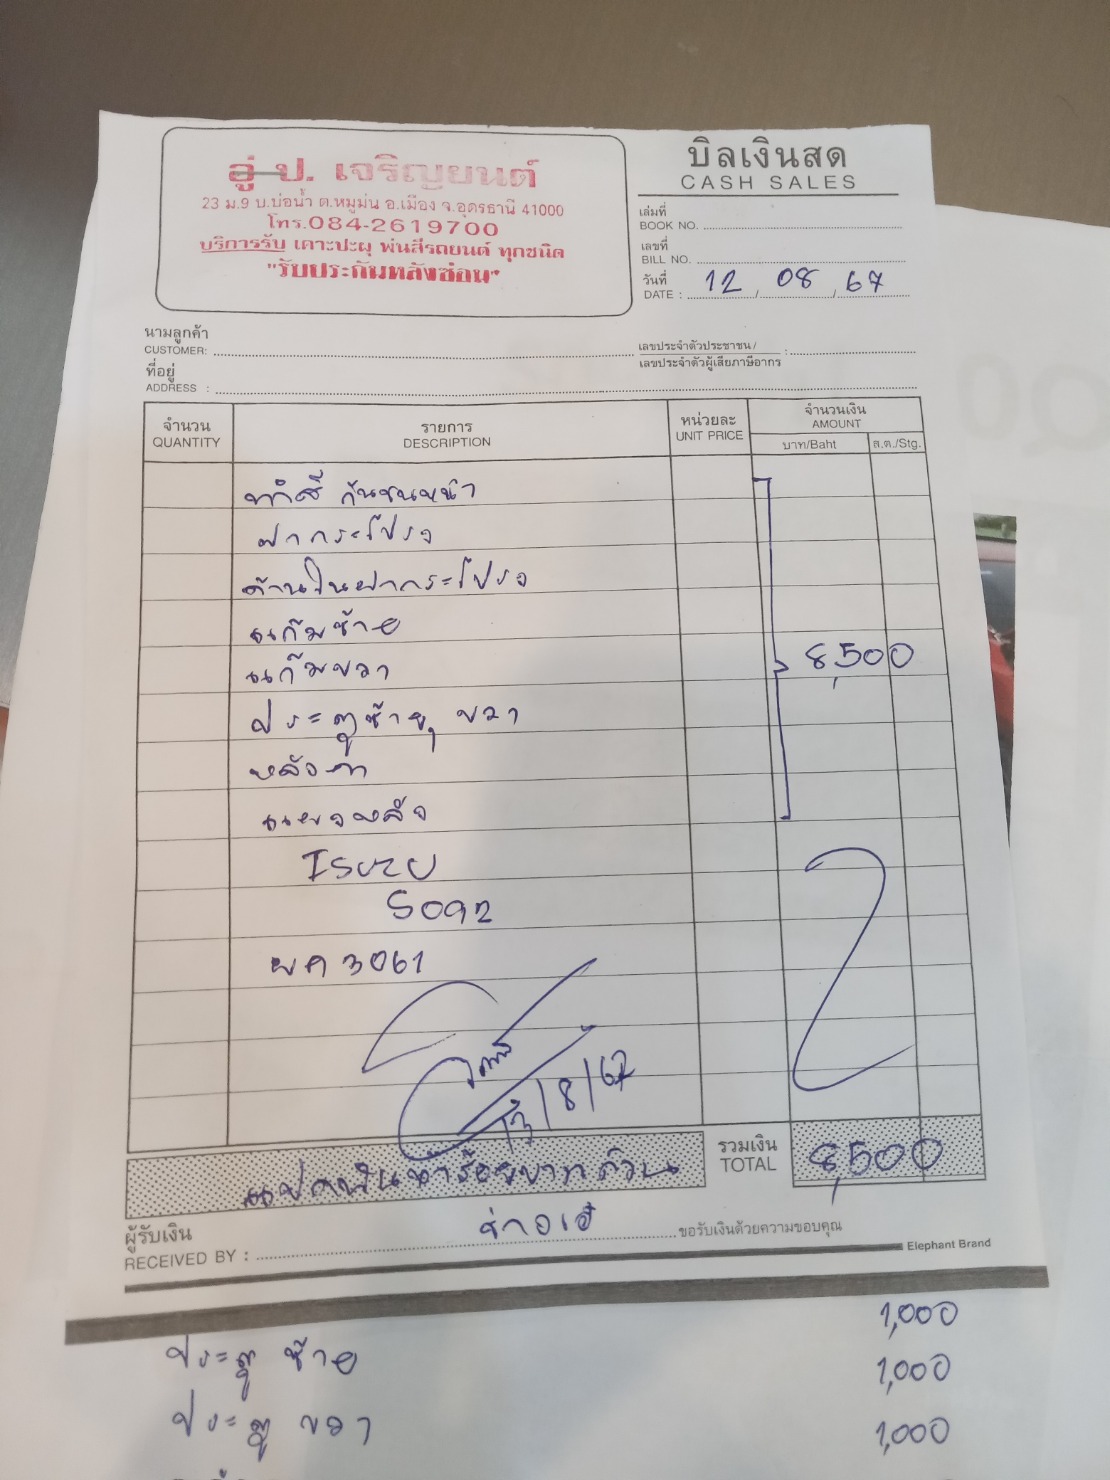 อู่ ป. เจริญยนต์
23 ม.9 บ.บ่อน้ำ ต.หมูม่น อ.เมือง จ.อุดรธานี 41000
โทร.084-2619700
บริการรับ เคาะปะผุ พ่นสีรถยนต์ ทุกชนิด
"รับประกันหลังซ่อม"
บิลเงินสด
CASH SALES
เล่มที่
BOOK NO.
เลขที่
BILL NO.
วันที่ 12 / 08 / 67
DATE :
นามลูกค้า
CUSTOMER:
เลขประจำตัวประชาชน /
เลขประจำตัวผู้เสียภาษีอากร :
ที่อยู่
ADDRESS :
จำนวน
QUANTITY
รายการ
DESCRIPTION
หน่วยละ
UNIT PRICE
จำนวนเงิน
AMOUNT
บาท/Baht
ส.ต./Stg.
ทำสี กันชนหน้า
ฝากระโปรง
ด้านในฝากระโปรง
แก้มซ้าย
แก้มขวา
8,500
ประตูซ้าย, ขวา
หลังคา
แผงหลัง
ISUZU
ผค 3061
13/8/67
แปดพันห้าร้อยบาทถ้วน
รวมเงิน
TOTAL
8,500
ผู้รับเงิน
RECEIVED BY :
ขอรับเงินด้วยความขอบคุณ
Elephant Brand
1,000
ประตู ซ้าย 1,000
ประตู ขวา 1,000